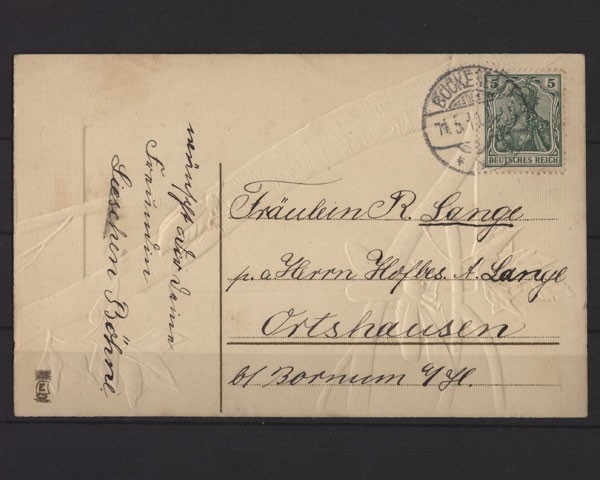 wünscht Dir Deine
Freundin
Lieschen Böhne
BOCKE
5.10
5 5
DEUTSCHES REICH
Fräulein R. Lange
p. a Herrn Hofbes. A. Lange
Ortshausen
b/ Bornum a/H.
E